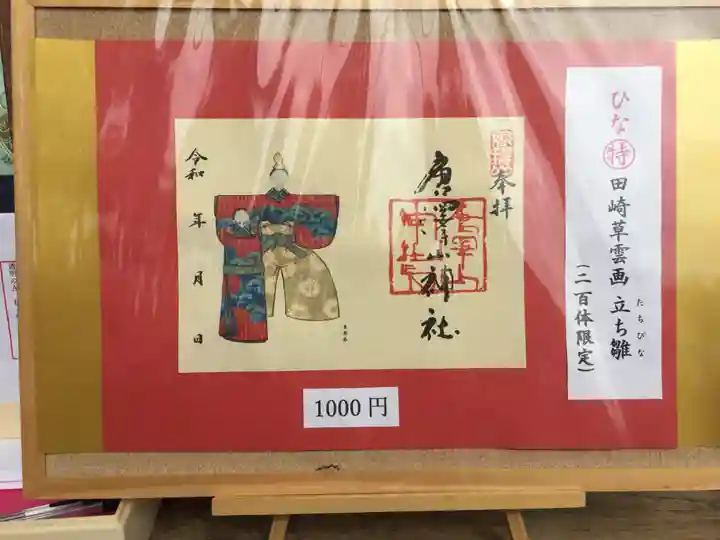 ひな㊕田崎草雲画 立ち雛
たちびな
(二百体限定)
奉拝
唐澤山神社
令和 年 月 日
1000円